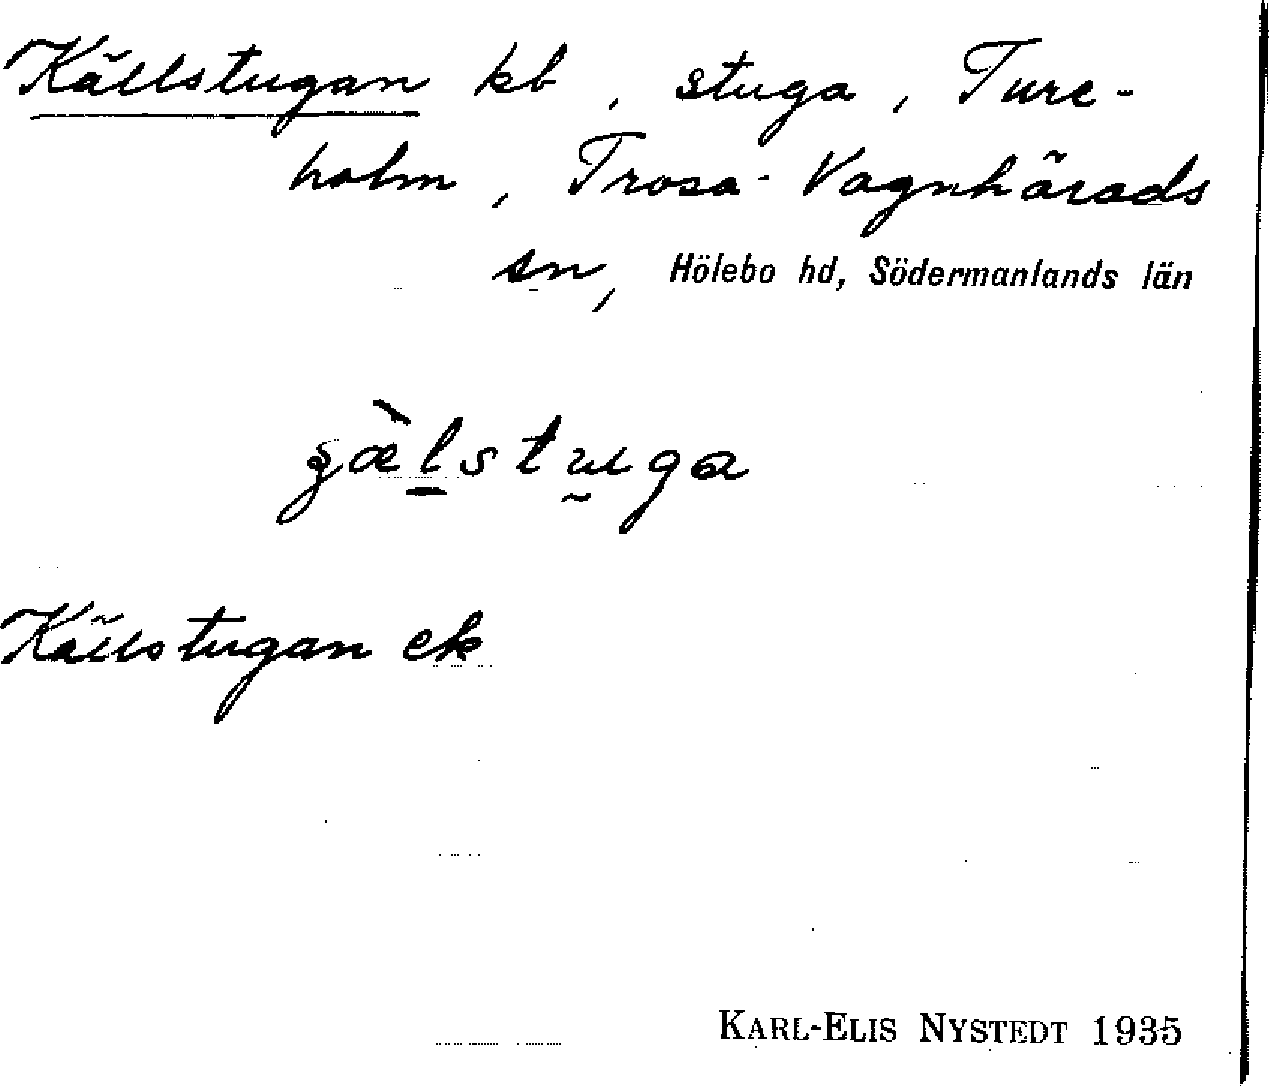 Källstugan kb, stuga, Ture-
holm, Trosa-Vagnhärads
sn, Hölebo hd, Södermanlands län
Källstugan ek
KARL-ELIS NYSTEDT 1935